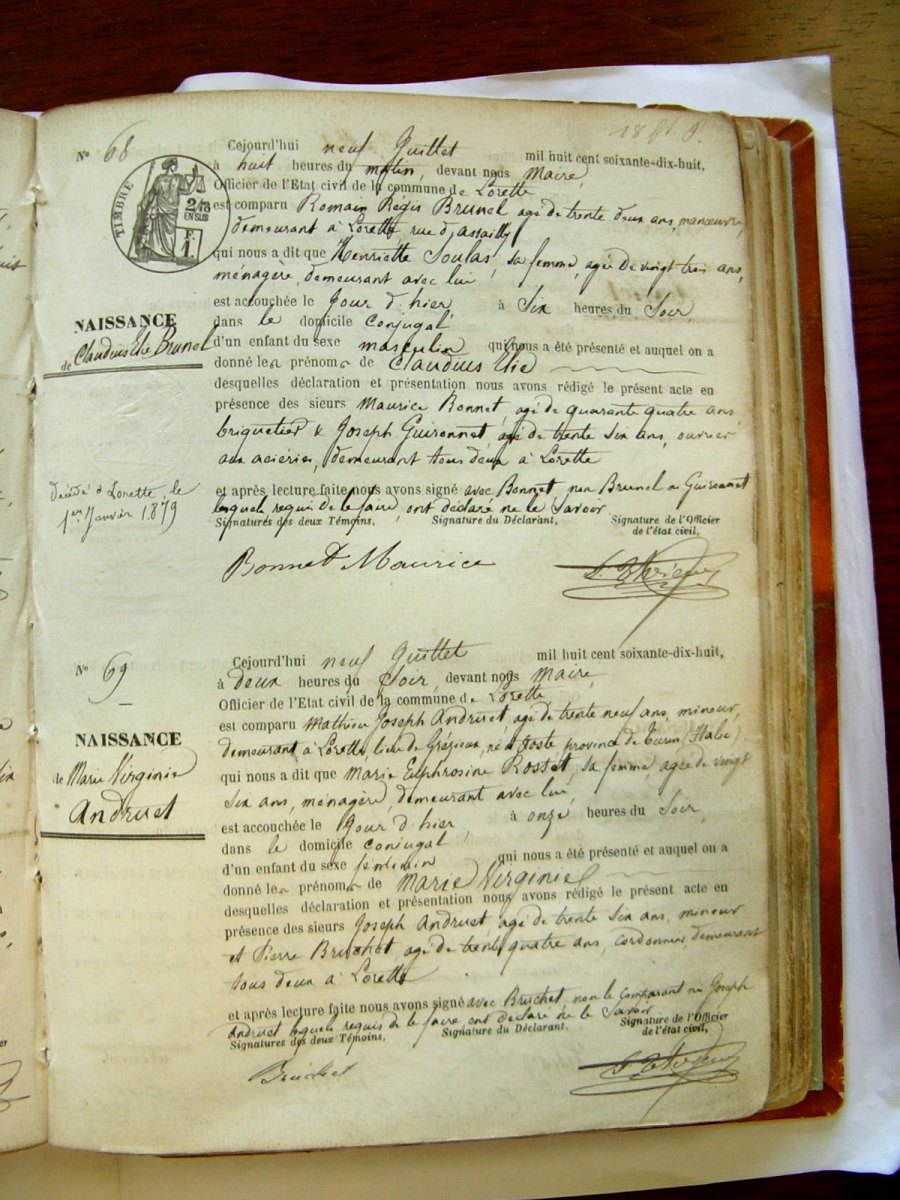 N° 68
TIMBRE
2/10
EN SUS
F.
1.
Cejourd'hui neuf Juillet mil huit cent soixante-dix-huit,
à huit heures du matin, devant nous Maire,
Officier de l'Etat civil de la commune de Lorette
est comparu Romain Régis Brunel agé de trente deux ans, manœuvre,
demeurant à Lorette rue d'assailly
qui nous a dit que Henriette Soulas, sa femme, agée de vingt trois ans,
ménagère, demeurant avec lui
est accouchée le Jour d'hier, à Six heures du Soir,
dans le domicile conjugal
d'un enfant du sexe masculin qui nous a été présenté et auquel on a
donné les prénoms de Claudius Elie
desquelles déclaration et présentation nous avons rédigé le présent acte en
présence des sieurs Maurice Bonnet, agé de quarante quatre ans
briquetier & Joseph Guironnet, agé de trente Six ans, ouvrier
aux aciéries, demeurant tous deux à Lorette
et après lecture faite nous avons signé avec Bonnet, non Brunel ni Guironnet
lesquels requis de le faire, ont déclaré ne le Savoir
Signatures des deux Témoins, Signature du Déclarant, Signature de l'Officier
de l'état civil,
Bonnet Maurice
NAISSANCE
de Claudius Elie Brunel
décédé à Lorette, le
1er Janvier 1879
N° 69
Cejourd'hui neuf Juillet mil huit cent soixante-dix-huit,
à deux heures du Soir, devant nous Maire,
Officier de l'Etat civil de la commune de Lorette
est comparu Mathieu Joseph Andruet agé de trente neuf ans, mineur,
demeurant à Lorette, lieu de Grézieux, né à Joste province de Turin (Italie)
qui nous a dit que Marie Euphrosine Rosset, sa femme, agée de vingt
Six ans, ménagère, demeurant avec lui,
est accouchée le Jour d'hier, à onze heures du Soir,
dans le domicile conjugal
d'un enfant du sexe féminin qui nous a été présenté et auquel on a
donné les prénoms de Marie Virginie
desquelles déclaration et présentation nous avons rédigé le présent acte en
présence des sieurs Joseph Andruet, agé de trente Six ans, mineur
et Pierre Bruchet, agé de trente quatre ans, cordonnier demeurant
tous deux à Lorette
et après lecture faite nous avons signé avec Bruchet, non le comparant ni Joseph
Andruet lesquels requis de le faire ont déclaré ne le Savoir
Signatures des deux Témoins, Signature du Déclarant, Signature de l'Officier
de l'état civil,
Bruchet
NAISSANCE
de Marie Virginie
Andruet